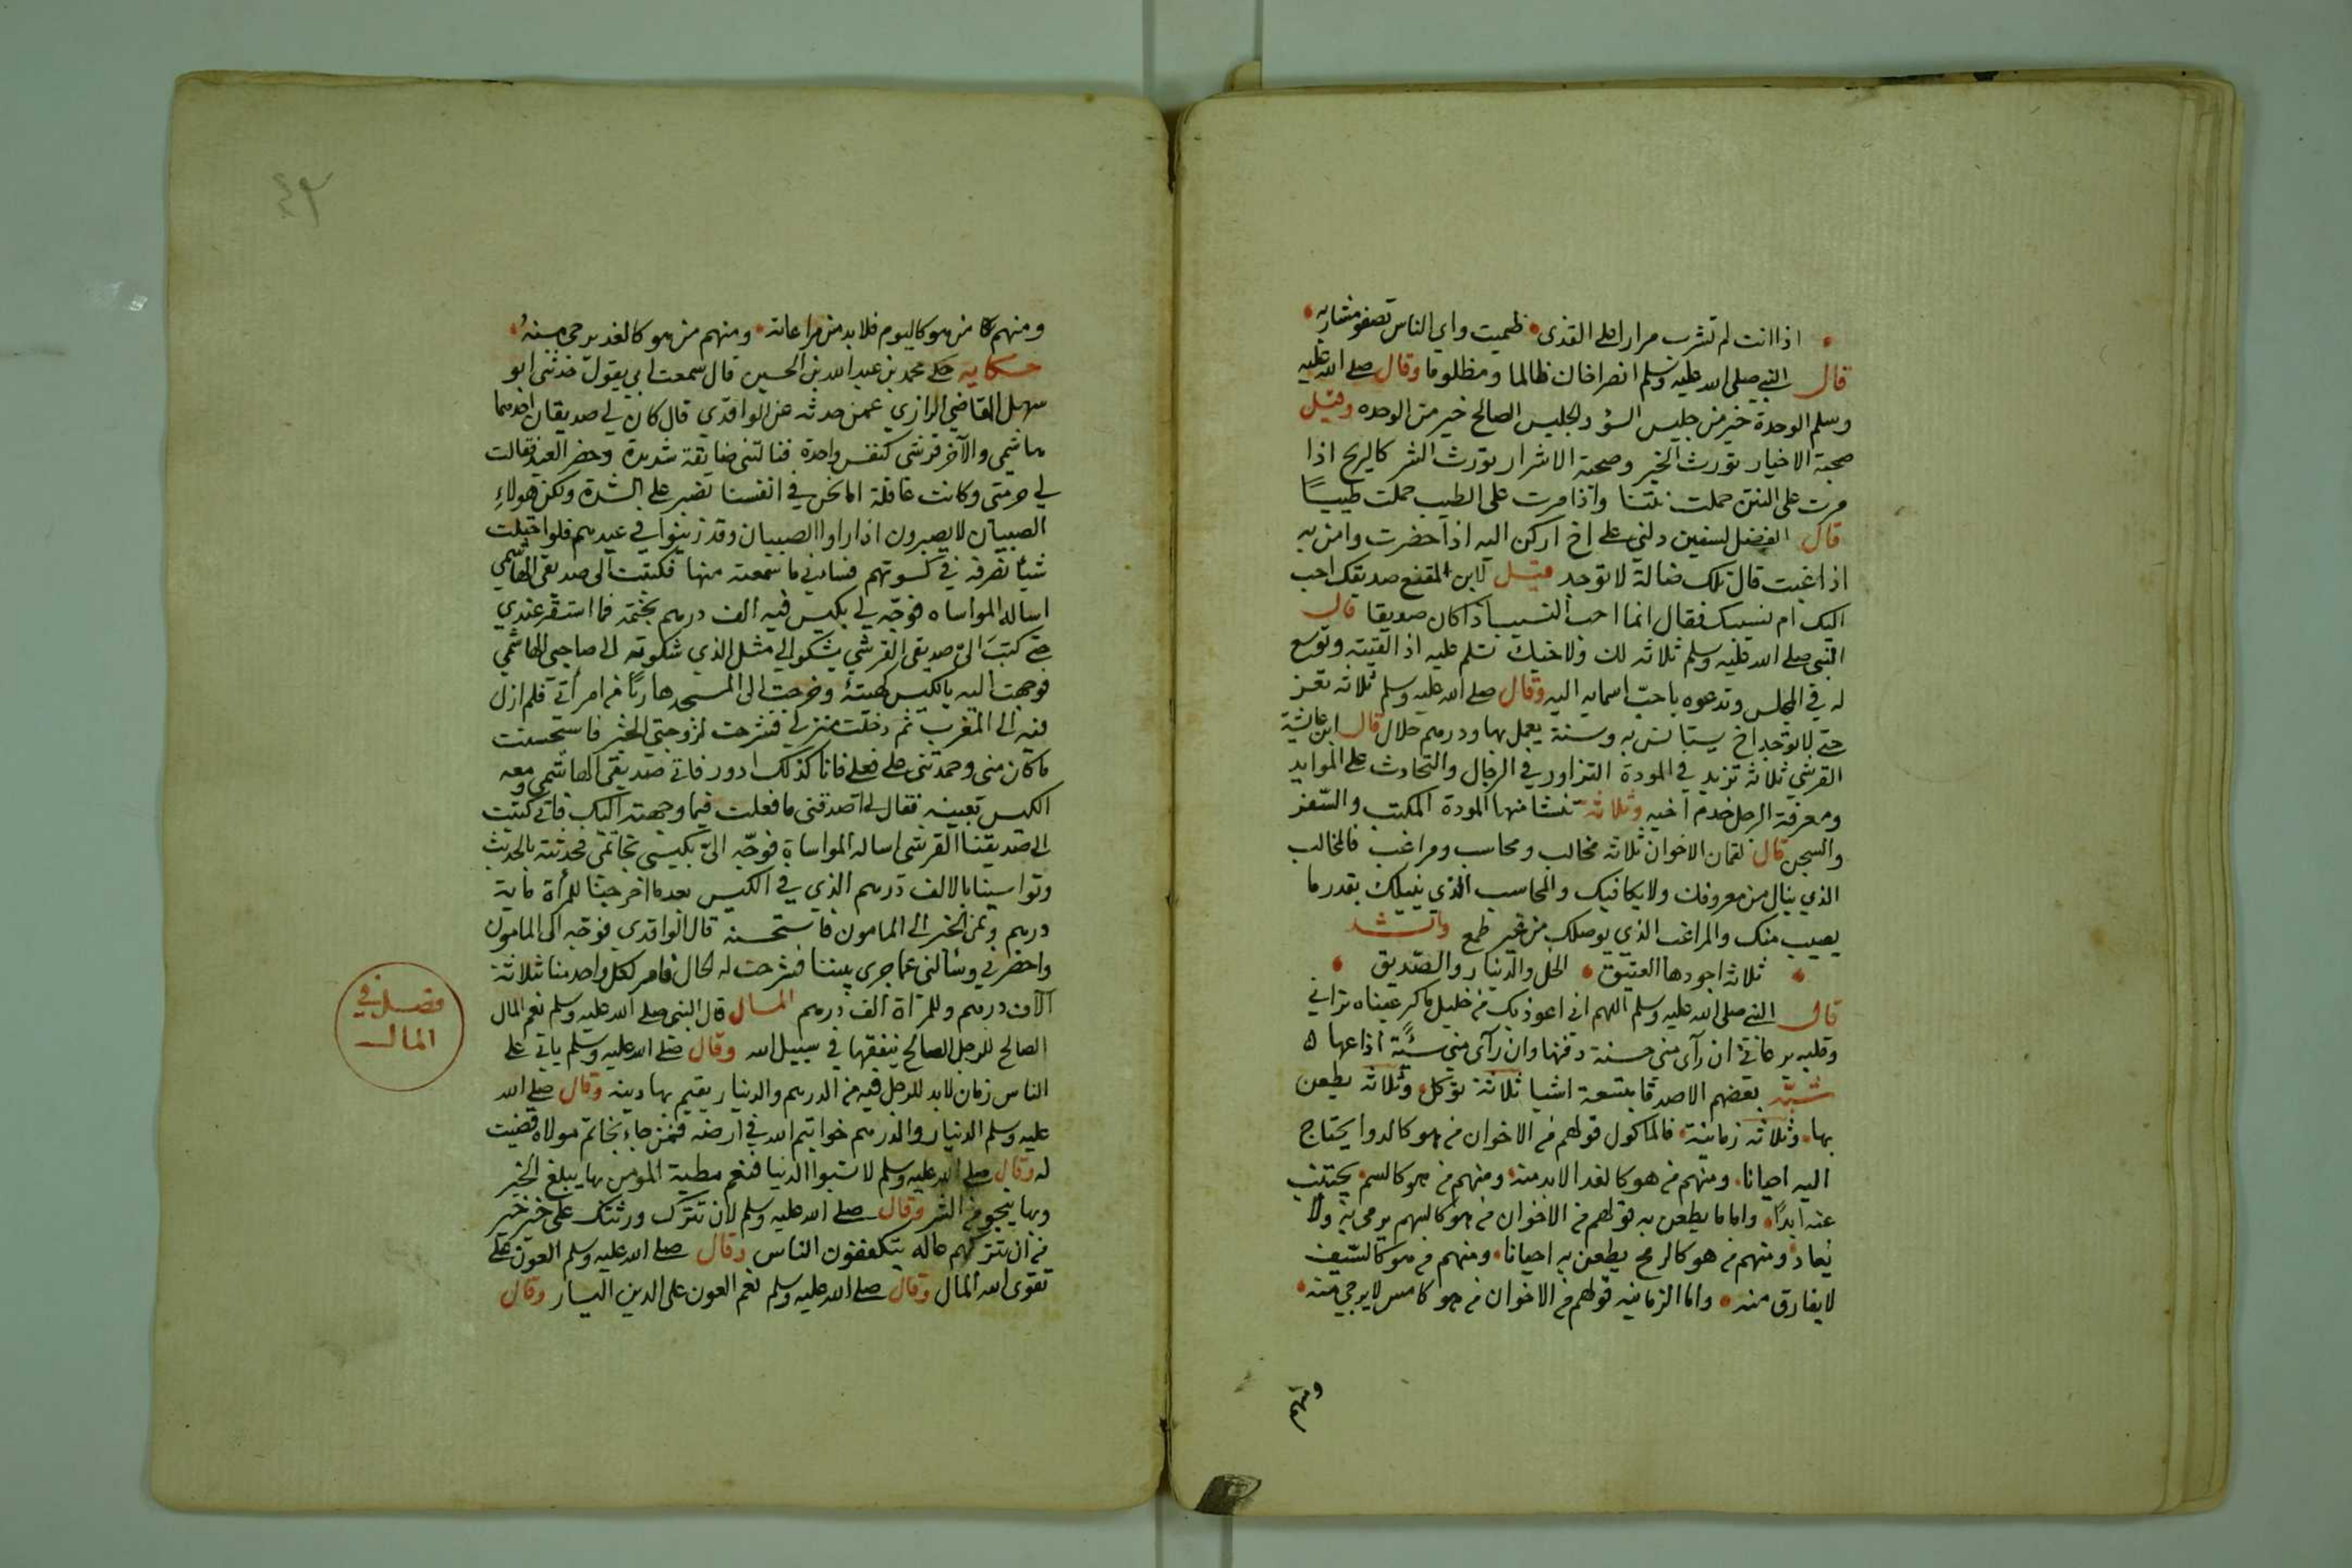 اذا انت لم تشرب مرارا على القذى ظميت واي الناس تصفو مشاربه
قال النبي صلى الله عليه وسلم انصر اخاك ظالما ومظلوما وقال صلى الله عليه
وسلم الوحدة خير من جليس السؤ والجليس الصالح خير من الوحده وقيل
صحبة الاخيار تورث الخير وصحبة الاشرار تورث الشر كالريح اذا
مرت على النتن حملت نتنا واذا مرت على الطيب حملت طيبًا
قال الفضل لسفين دلني على اخ اركن اليه اذا حضرت وامن به
اذا غبت قال تلك ضالة لا توجد قيل لابن المقفع صديقك احب
اليك ام نسيبك فقال انما احب النسيب اذا كان صديقا قال
النبي صلى الله عليه وسلم ثلاثه لك ولاخيك تسلم عليه اذا لقيته وتوسع
له في المجلس وتدعوه باحبّ اسمايه اليه وقال صلى الله عليه وسلم ثلاثه تعز
حتى لا توجد اخ يستانس به وسنة يعمل بها ودرهم حلال قال ابن عايشة
القرشي ثلاثة تزيد في المودة التزاور في الرحال والتحادث على الموايد
ومعرفة الرجل خدم اخيه وثلاثة تنشا منها المودة المكتب والسّفر
والسجن قال لقمان الاخوان ثلاثه مخالب ومحاسب ومراغب فالمخالب
الذي ينال من معروفك ولا يكافيك والمحاسب الذي ينيلك بقدر ما
يصيب منك والمراغب الذي يوصلك من غير طمع وانشد
ثلاثة اجودها العتيق الخل والدينار والصّديق
قال النبي صلى الله عليه وسلم اللهم اني اعوذ بك من خليل ماكر عيناه تراني
وقلبه يرعاني ان رآى مني حسنة دفنها وان رآى مني سيّئة اذاعها ه
شبّه بعضهم الاصدقا بتسعة اشيا ثلاثة تؤكل وثلاثه يطعن
بها وثلاثه زمانية فالماكول قولهم من الاخوان من هو كالدوا يحتاج
اليه احيانا ومنهم من هو كالغدا لابد منه ومنهم من هو كالسم يجتنب
عنه ابدًا واما ما يطعن به قولهم من الاخوان من هو كالسهم يرمى به ولا
يُعاد ومنهم من هو كالرمح يطعن به احيانا ومنهم من هو كالسّيف
لا يفارق منه واما الزمانيه قولهم من الاخوان من هو كامس لا يرجى منه
ومنهم
ومنهم من هو كاليوم فلابد من مراعاته ومنهم من هو كالغد يرجى منه
حكايه حكى محمد بن عبد الله بن الحسين قال سمعت ابي يقول حدثني ابو
سهل القاضي الرازي عمن حدثه عن الواقدي قال كان لي صديقان احدهما
هاشمي والآخر قرشي كنفس واحدة فنالتني ضايقة شديدة وحضر العيد فقالت
لي حرمتي وكانت عاقلة اما نحن في انفسنا نصبر على الشدة ولكن هولاء
الصبيان لا يصبرون اذا راوا الصبيان وقد زينوا في عيدهم فلو احتلت
شيأ نصرفه في كسوتهم فساني ما سمعته منها فكتبت الى صديقى الهاشمي
اساله المواساه فوجّه لي بكيس فيه الف درهم بختمه فما استقر عندي
حتى كتب اليّ صديقى القرشي يشكو الي مثل الذي شكوته الى صاحبي الهاشمي
فوجهت اليه بالكيس كهيئته وخرجت الى المسجد هاربًا من امرأتي فلم ازل
فيه الى المغرب ثم دخلت منزلي فشرحت لزوجتي الخبر فاستحسنت
ما كان مني وحمدتني على فعلي فانا كذلك ادور فاتى صديقى الهاشمي ومعه
الكيس بعينه فقال لي اصدقني ما فعلت فيما وجهته اليك فاني كتبت
الى صديقنا القرشي اساله المواساة فوجّه اليّ بكيسي بخاتمي فحدثته بالحديث
وتواسينا بالالف درهم الذي في الكيس بعد ما اخرجنا للمرأة ماية
درهم ونمى الخبر الى المامون فاستحسنه قال الواقدي فوجّه الى المامون
واحضرني وسألني عما جرى بيننا فشرحت له الحال فامر لكل واحد منا ثلاثة
آلاف درهم وللمرآة الف درهم المال قال النبي صلى الله عليه وسلم نعم المال
الصالح للرجل الصالح ينفقها في سبيل الله وقال صلى الله عليه وسلم ياتي على
الناس زمان لابد للرجل فيه من الدرهم والدينار يقيم بها دينه وقال صلى الله
عليه وسلم الدينار والدرهم خواتيم الله في ارضه فمن جاء بخاتم مولاه قضيت
له وقال صلى الله عليه وسلم لا تسبوا الدنيا فنعم مطية المومن بها يبلغ الخير
وبها ينجو من الشر وقال صلى الله عليه وسلم لان تترك ورثتك على خير خير
من ان تتركهم عاله يتكففون الناس وقال صلى الله عليه وسلم العون على
تقوى الله المال وقال صلى الله عليه وسلم نعم العون على الدين اليسار وقال
فصل في
المال